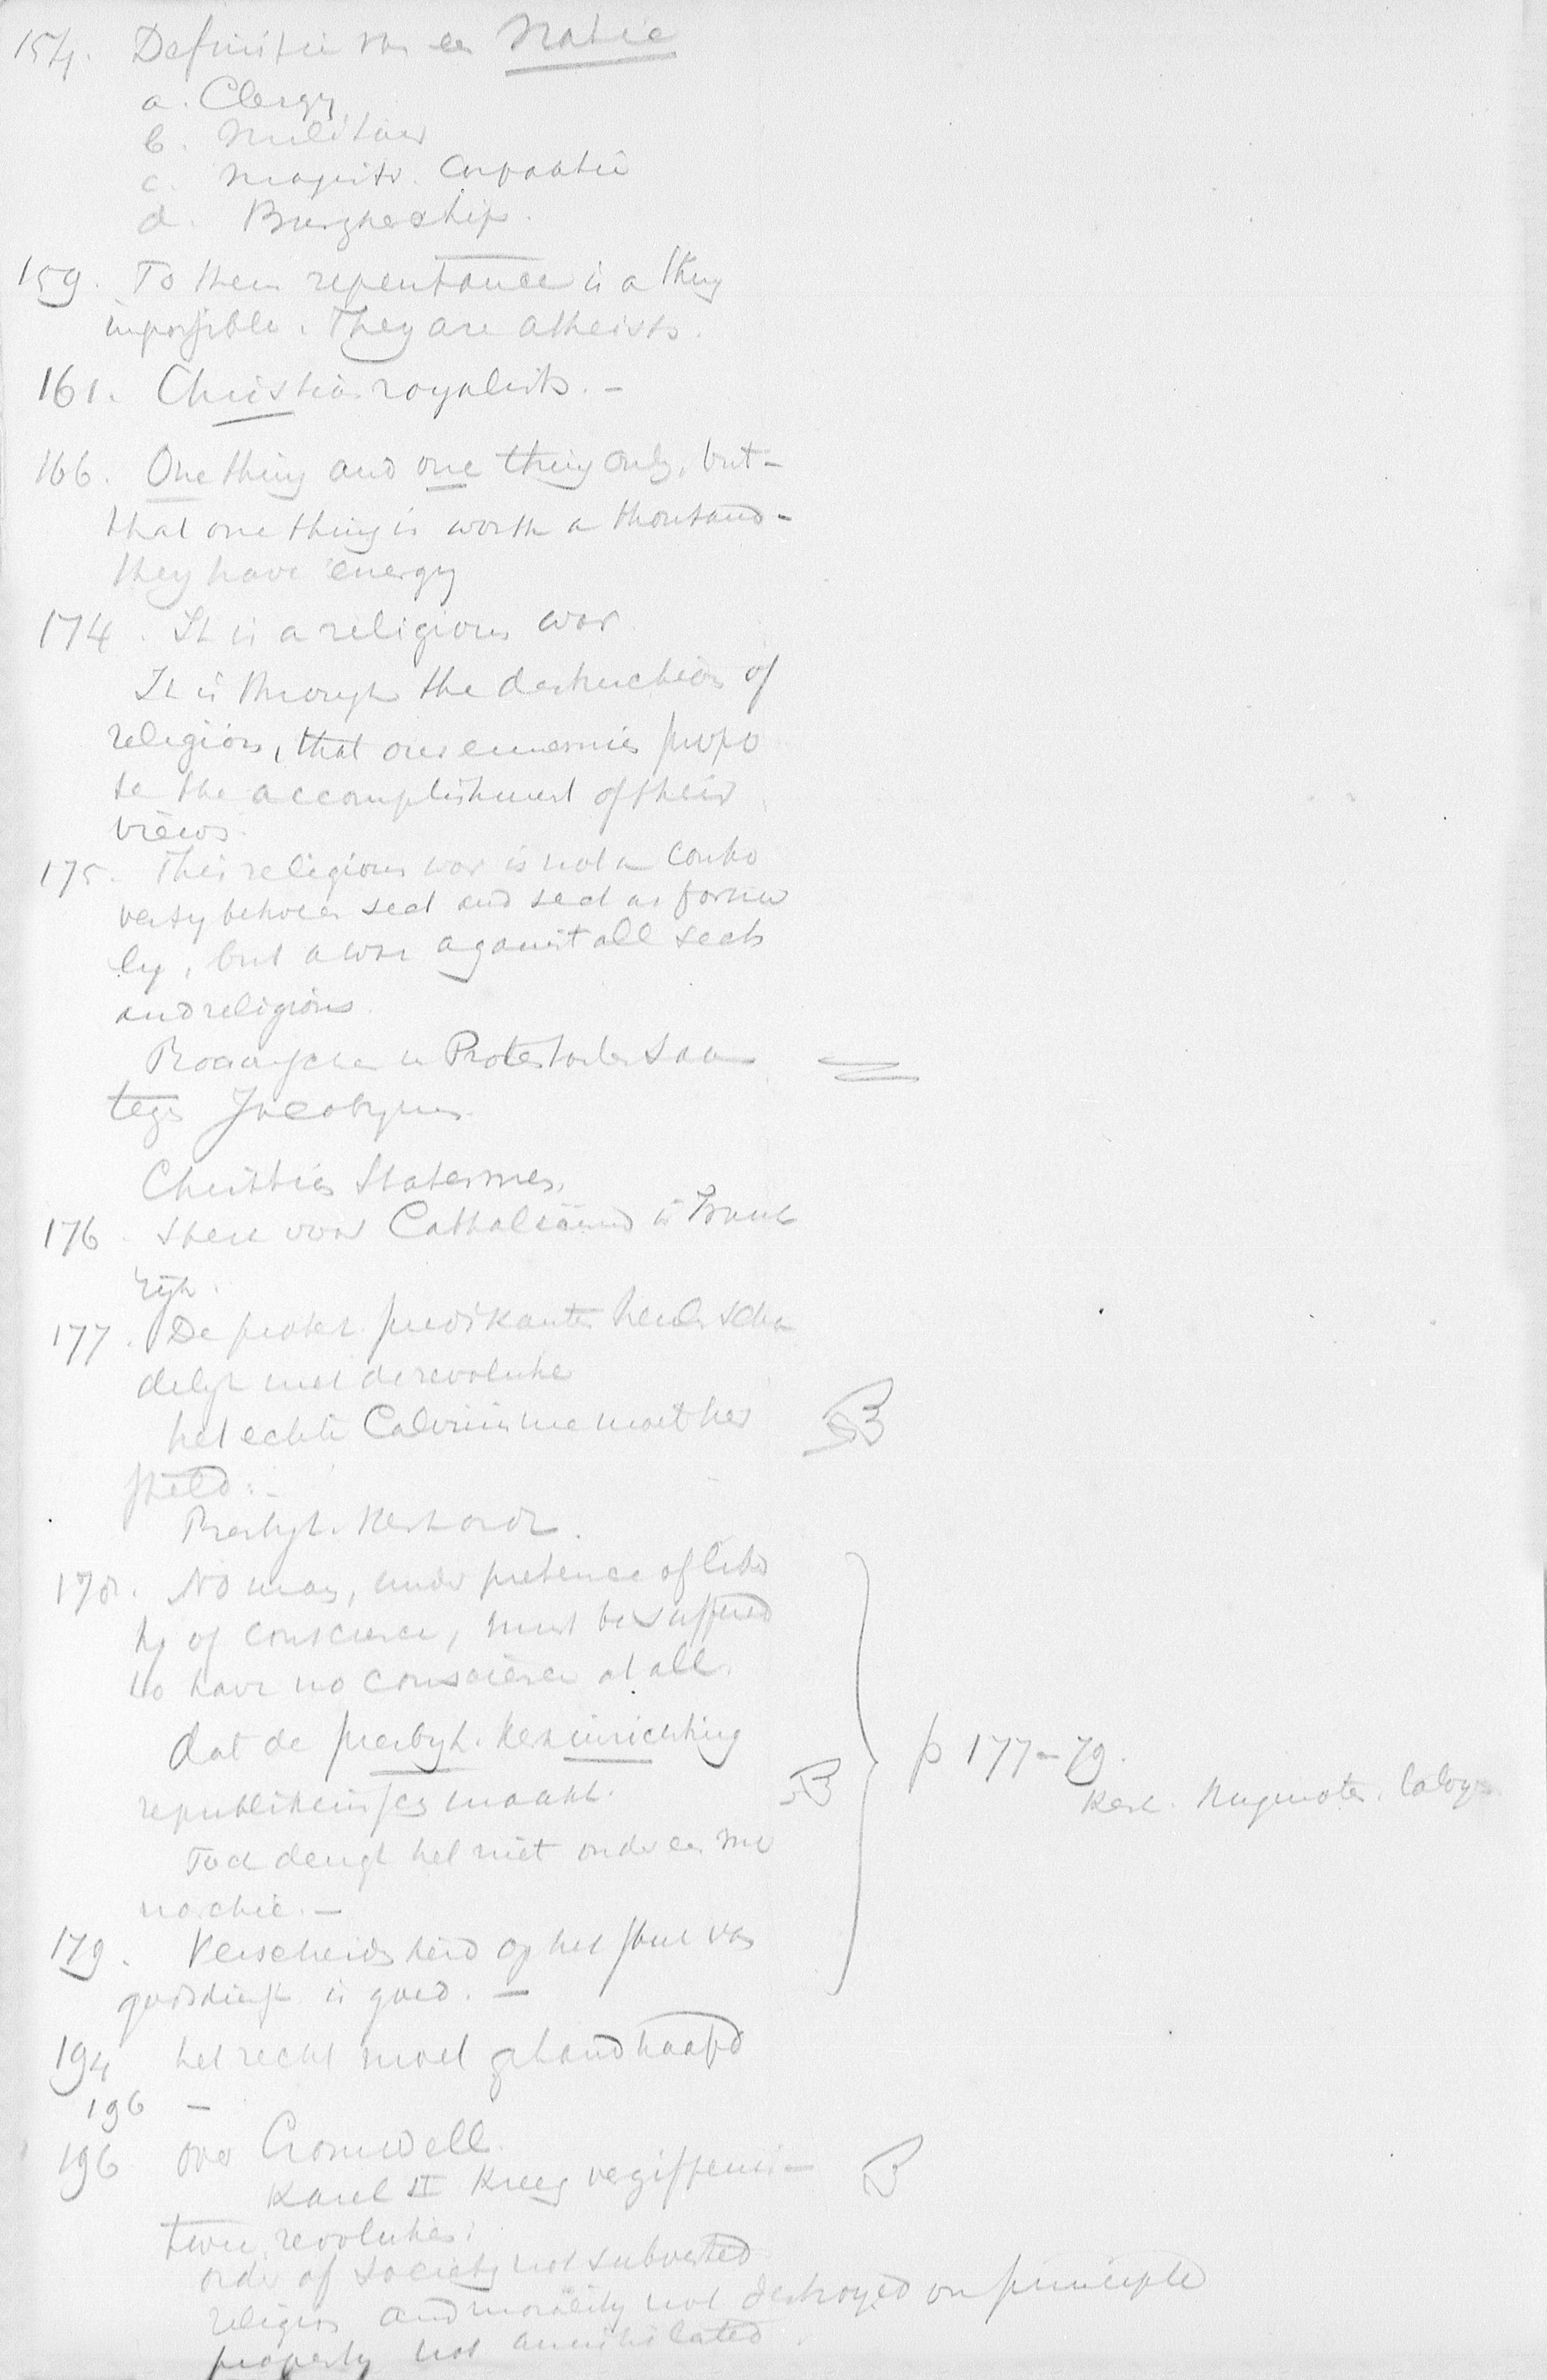 154. Definitie van een Natie
a. Clergy
b. Militair
c. Magistr. Corporatie
d. Burghership.
159. To them repentance is a thing
impossible. They are atheists.
161. Christian royalists. -
166. One thing and one thing only, but -
that one thing is worth a thousand -
they have energy
174. It is a religious war.
It is through the destruction of
religion, that our enemies propo
se the accomplishment of their
views.
175. This religious war is not a contro
versy between sect and sect as former
ly, but a war against all sects
and religions.
Roomschen en Protestanten saam
tegen Jacobynen.
Christian Statesmen.
176 steun voor Catholicisme in Frank
rijk.
177. De protest. predikanten heulen scha
delijk met de revolutie
het echte Calvinisme moet her
steld. -
Presbyt. Kerkorde.
178. No man, under pretence of liber
ty of conscience, must be suffered
to have no conscience at all.
dat de presbyt. kerkinrichting
republikeinsch maakt.
Toch deugt het niet onder een mo
narchie. -
p 177-79.
Hugenoten.
179. Verscheidenheid op het stuk van
godsdienst is goed. -
194 het recht moet gehandhaafd
196 -
196 over Cromwell.
Karel II kreeg
twee revoluties:
order of society not subverted
religion and morality not destroyed on principle
property not annihilated.